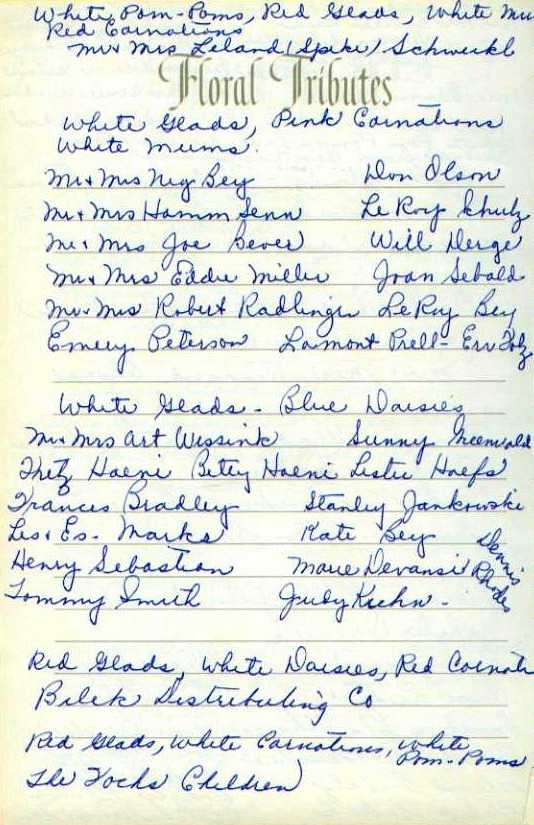 White Pom-Poms, Red Glads, White Mu
Red Carnations
Mr & Mrs Leland (Spike) Schweikl
Floral Tributes
White Glads, Pink Carnations
White Mums.
Mr & Mrs Neg Bey Don Olson
Mr & Mrs Hamm Senn Le Roy Schulz
Mr & Mrs Joe Bever Will Derge
Mr & Mrs Eddie Miller Joan Sebold
Mr & Mrs Robert Radlinger LeRoy Bey
Emery Peterson Lamont Prell - Erv Folz
White Glads - Blue Daisies
Mr & Mrs Art Wissink Sunny Greenwald
Fritz Haeni Betty Haeni Lester Hoefs
Frances Bradley Stanley Jankowske
Les & Es. Marks Kate Bey
Henry Sebastian Marie Devansi Dennis Rhodes
Tommy Smith Judy Kuehn.
Red Glads, White Daisies, Red Carnati
Bilek Distributing Co
Red Glads, White Carnations, White
Pom-Poms
The Fochs Children